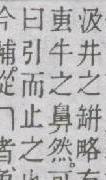 汲井之缾略
叀牛之鼻然。
曰引而止之
今補從冂者